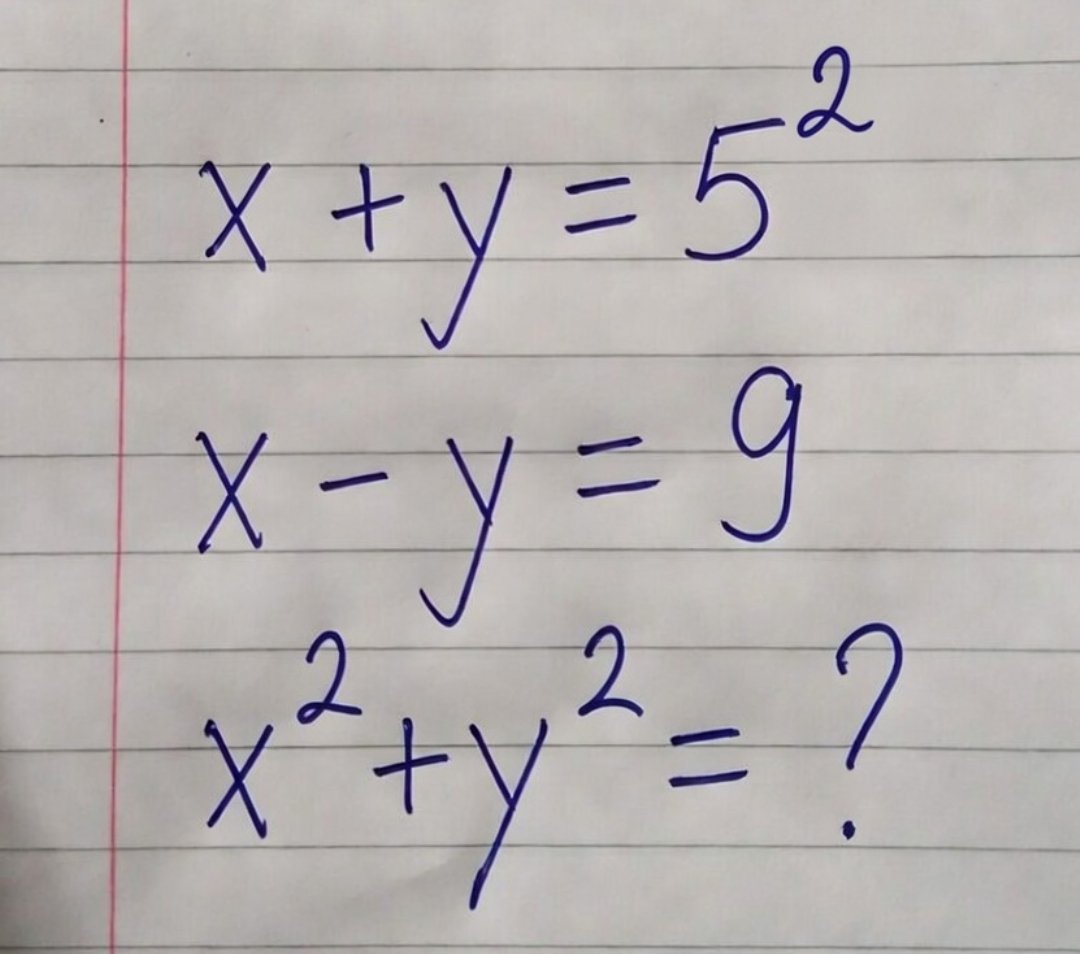 x + y = 5²
x - y = 9
x² + y² = ?